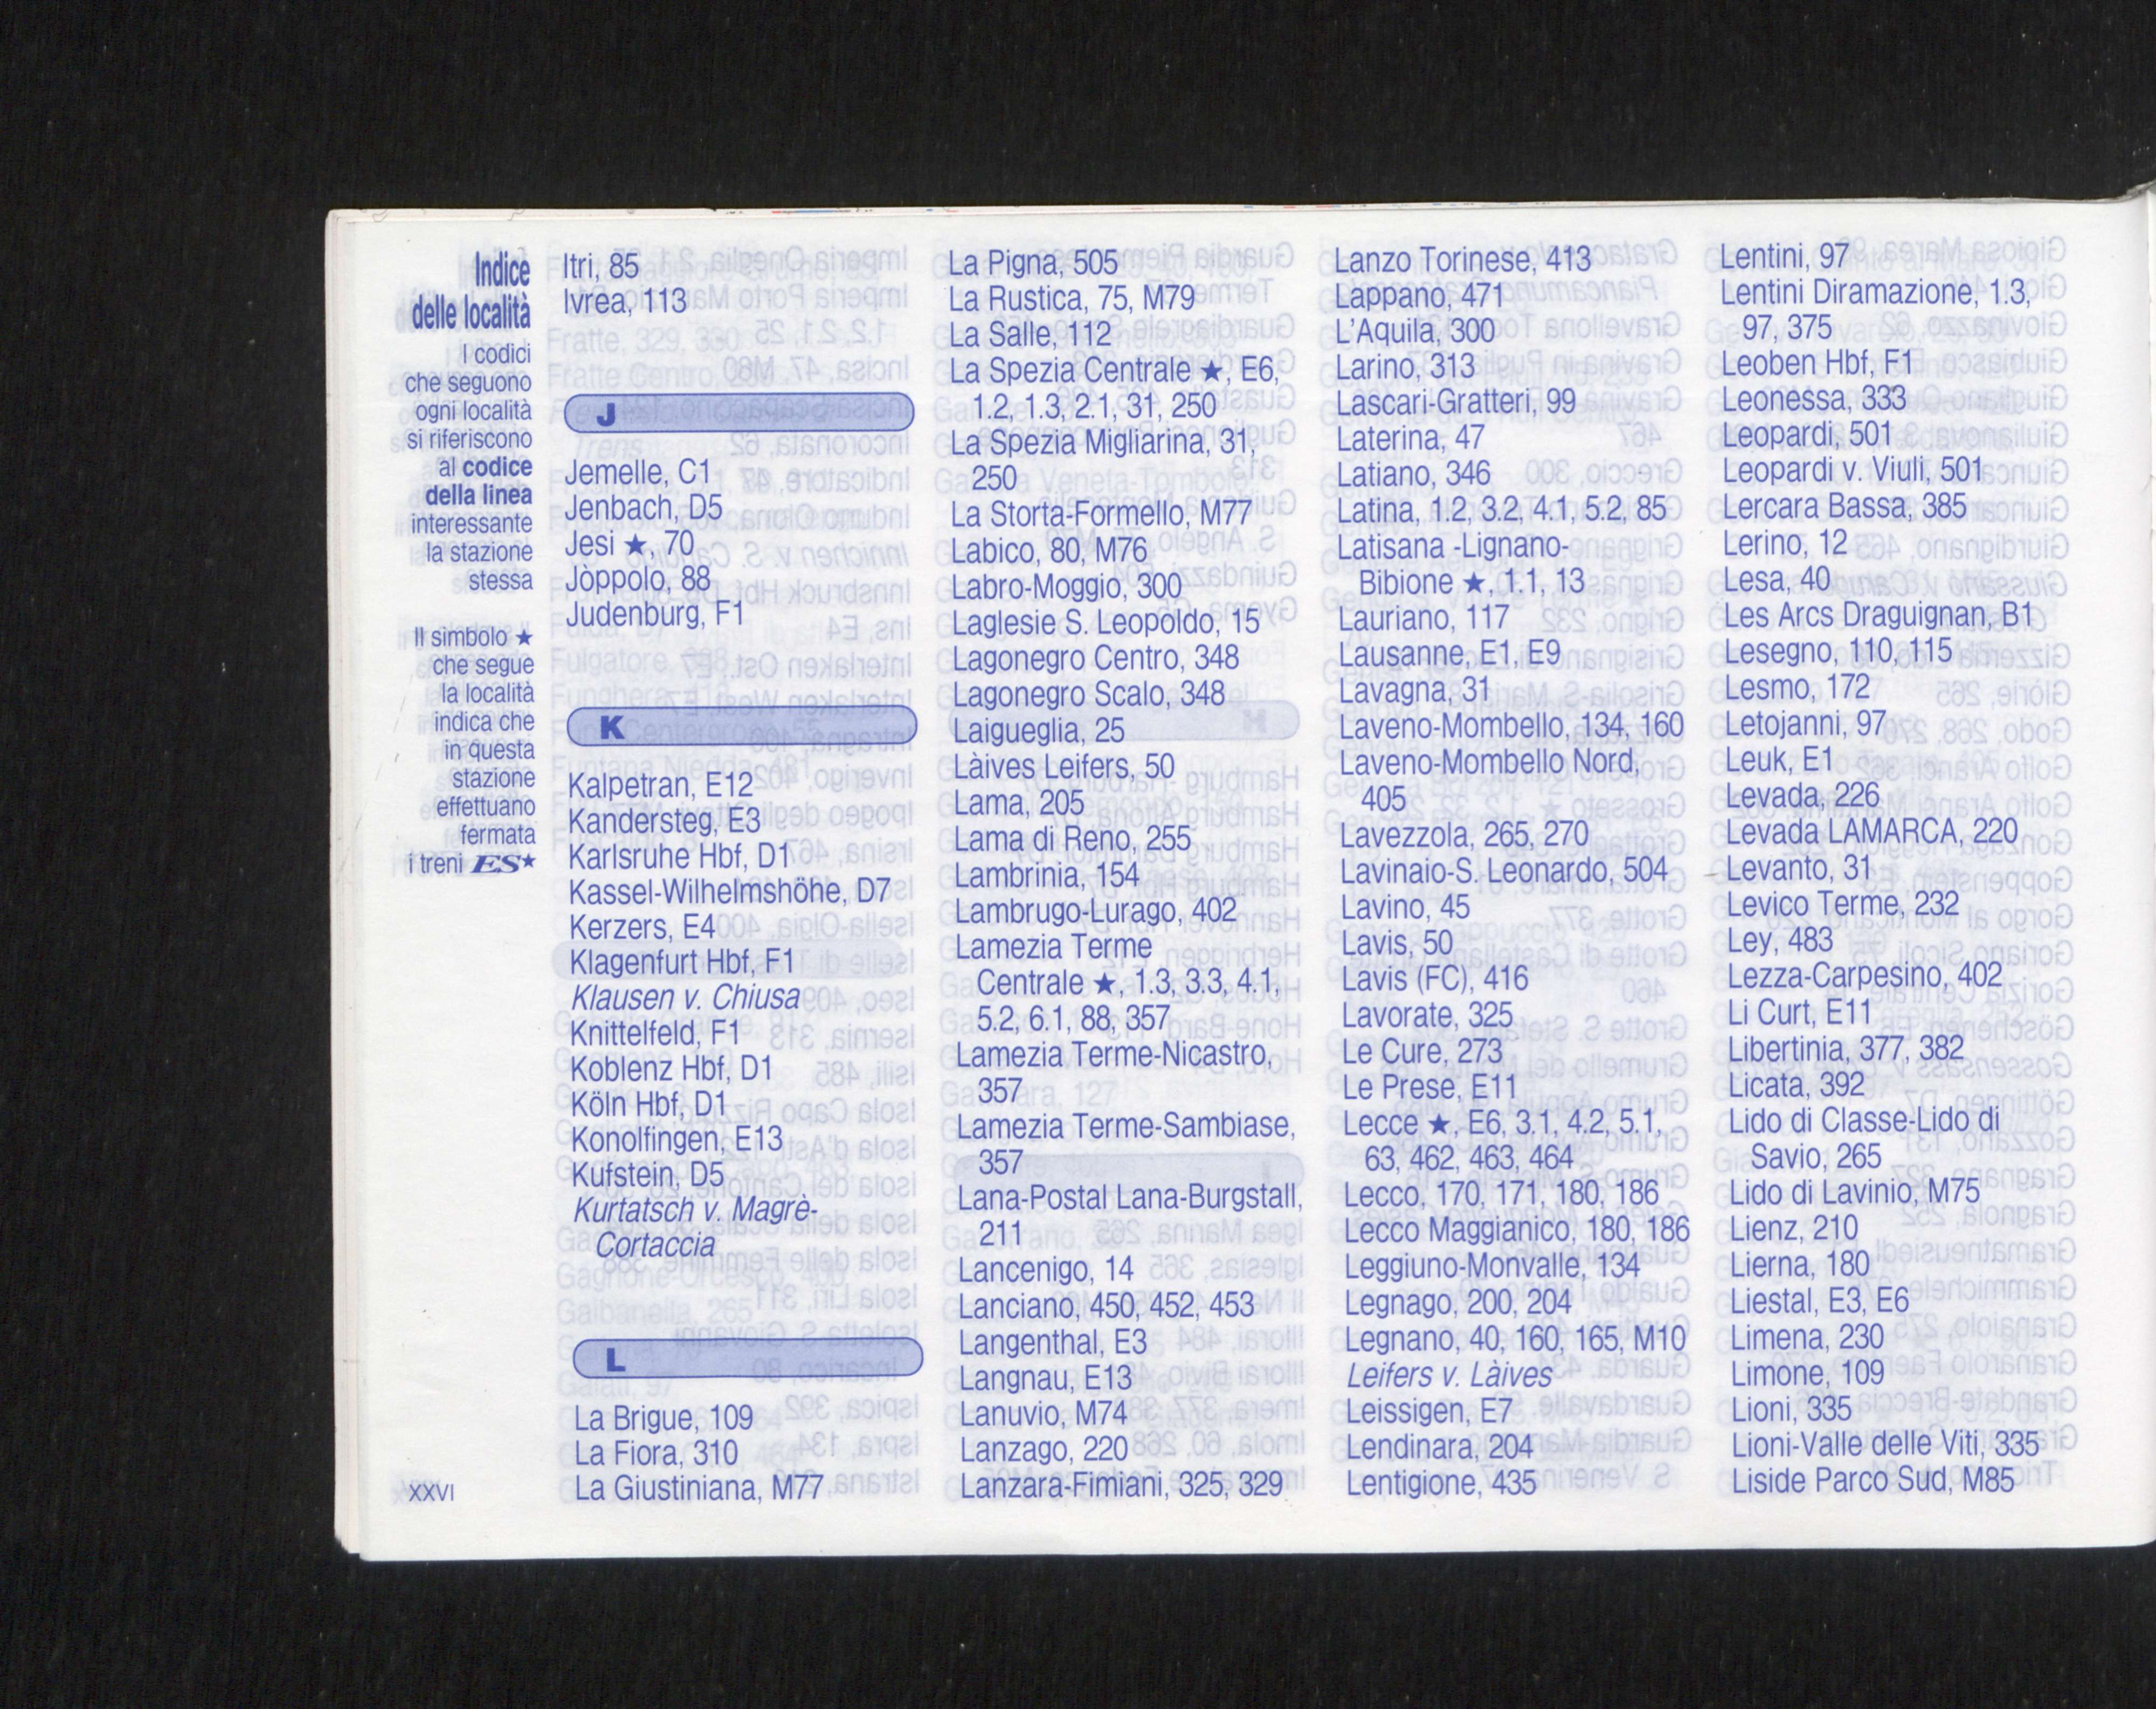 Indice
delle località
I codici
che seguono
ogni località
si riferiscono
al codice
della linea
interessante
la stazione
stessa
Il simbolo ★
che segue
la località
indica che
in questa
stazione
effettuano
fermata
i treni ES★
XXVI
Itri, 85
Ivrea, 113
J
Jemelle, C1
Jenbach, D5
Jesi ★, 70
Jòppolo, 88
Judenburg, F1
K
Kalpetran, E12
Kandersteg, E3
Karlsruhe Hbf, D1
Kassel-Wilhelmshöhe, D7
Kerzers, E4
Klagenfurt Hbf, F1
Klausen v. Chiusa
Knittelfeld, F1
Koblenz Hbf, D1
Köln Hbf, D1
Konolfingen, E13
Kufstein, D5
Kurtatsch v. Magrè-
Cortaccia
L
La Brigue, 109
La Fiora, 310
La Giustiniana, M77
La Pigna, 505
La Rustica, 75, M79
La Salle, 112
La Spezia Centrale ★, E6,
1.2, 1.3, 2.1, 31, 250
La Spezia Migliarina, 31,
250
La Storta-Formello, M77
Labico, 80, M76
Labro-Moggio, 300
Laglesie S. Leopoldo, 15
Lagonegro Centro, 348
Lagonegro Scalo, 348
Laigueglia, 25
Làives Leifers, 50
Lama, 205
Lama di Reno, 255
Lambrinia, 154
Lambrugo-Lurago, 402
Lamezia Terme
Centrale ★, 1.3, 3.3, 4.1,
5.2, 6.1, 88, 357
Lamezia Terme-Nicastro,
357
Lamezia Terme-Sambiase,
357
Lana-Postal Lana-Burgstall,
211
Lancenigo, 14
Lanciano, 450, 452, 453
Langenthal, E3
Langnau, E13
Lanuvio, M74
Lanzago, 220
Lanzara-Fimiani, 325, 329
Lanzo Torinese, 413
Lappano, 471
L'Aquila, 300
Larino, 313
Lascari-Gratteri, 99
Laterina, 47
Latiano, 346
Latina, 1.2, 3.2, 4.1, 5.2, 85
Latisana -Lignano-
Bibione ★, 1.1, 13
Lauriano, 117
Lausanne, E1, E9
Lavagna, 31
Laveno-Mombello, 134, 160
Laveno-Mombello Nord,
405
Lavezzola, 265, 270
Lavinaio-S. Leonardo, 504
Lavino, 45
Lavis, 50
Lavis (FC), 416
Lavorate, 325
Le Cure, 273
Le Prese, E11
Lecce ★, E6, 3.1, 4.2, 5.1,
63, 462, 463, 464
Lecco, 170, 171, 180, 186
Lecco Maggianico, 180, 186
Leggiuno-Monvalle, 134
Legnago, 200, 204
Legnano, 40, 160, 165, M10
Leifers v. Làives
Leissigen, E7
Lendinara, 204
Lentigione, 435
Lentini, 97
Lentini Diramazione, 1.3,
97, 375
Leoben Hbf, F1
Leonessa, 333
Leopardi, 501
Leopardi v. Viuli, 501
Lercara Bassa, 385
Lerino, 12
Lesa, 40
Les Arcs Draguignan, B1
Lesegno, 110, 115
Lesmo, 172
Letojanni, 97
Leuk, E1
Levada, 226
Levada LAMARCA, 220
Levanto, 31
Levico Terme, 232
Ley, 483
Lezza-Carpesino, 402
Li Curt, E11
Libertinia, 377, 382
Licata, 392
Lido di Classe-Lido di
Savio, 265
Lido di Lavinio, M75
Lienz, 210
Lierna, 180
Liestal, E3, E6
Limena, 230
Limone, 109
Lioni, 335
Lioni-Valle delle Viti, 335
Liside Parco Sud, M85